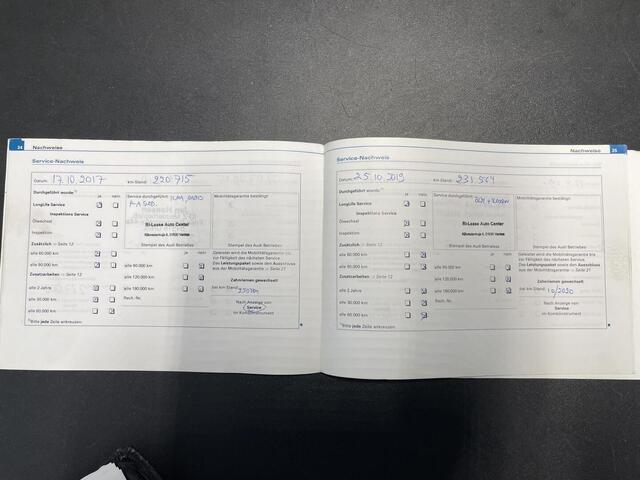 24 Nachweise
Service-Nachweis
Datum: 17.10.2017 km-Stand: 220 715
Durchgeführt wurde:
ja nein
LongLife Service
Inspektions Service
Ölwechsel
Inspektion
Zusätzlich → Seite 12
alle 60.000 km
alle 90.000 km
Zusatzarbeiten → Seite 12
alle 2 Jahre
alle 30.000 km
alle 60.000 km
Bitte jede Zeile ankreuzen.
Service durchgeführt:
Ri-Lasse Auto Center
Stempel des Audi Betriebes
ja nein
alle 90.000 km
alle 120.000 km
alle 180.000 km
Rech.-Nr.
Mobilitätsgarantie bestätigt:
Stempel des Audi Betriebes
Geleistet wird die Mobilitätsgarantie bis
zur Fälligkeit des nächsten Service.
Das Leistungspaket sowie den Ausschluss
aus der Mobilitätsgarantie → Seite 21
Zahnriemen gewechselt
bei km-Stand:
Nach Anzeige von
Service
im Kombiinstrument
Nachweise 25
Service-Nachweis
Datum: 25.10.2019 km-Stand: 231 564
Durchgeführt wurde:
ja nein
LongLife Service
Inspektions Service
Ölwechsel
Inspektion
Zusätzlich → Seite 12
alle 60.000 km
alle 90.000 km
Zusatzarbeiten → Seite 12
alle 2 Jahre
alle 30.000 km
alle 60.000 km
Bitte jede Zeile ankreuzen.
Service durchgeführt:
Ri-Lasse Auto Center
Stempel des Audi Betriebes
ja nein
alle 90.000 km
alle 120.000 km
alle 180.000 km
Rech.-Nr.
Mobilitätsgarantie bestätigt:
Stempel des Audi Betriebes
Geleistet wird die Mobilitätsgarantie bis
zur Fälligkeit des nächsten Service.
Das Leistungspaket sowie den Ausschluss
aus der Mobilitätsgarantie → Seite 21
Zahnriemen gewechselt
bei km-Stand: 10/2020
Nach Anzeige von
Service
im Kombiinstrument